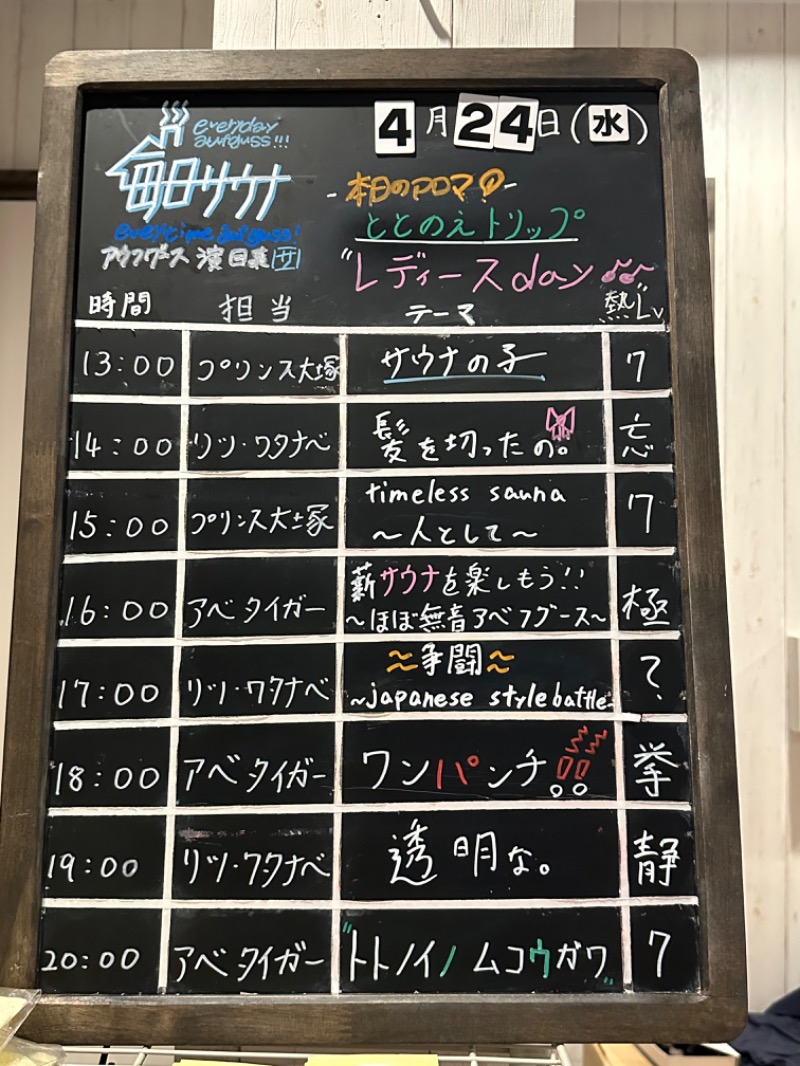 everyday
aufguss!!!
毎日サウナ
everytime aufguss!
4月24日(水)
-本日のアロマ-
ととのえトリップ
"レディースday
時間 担当 テーマ 熱Lv
13:00 プリンス大塚 サウナの子 7
14:00 リツ・ワタナベ 髪を切ったの。 忘
15:00 プリンス大塚 timeless sauna
～人として～ 7
16:00 アベタイガー 薪サウナを楽しもう!!
～ほぼ無音アベフグース～ 極
17:00 リツ・ワタナベ ～争闘～
～japanese style battle～ ?
18:00 アベタイガー ワンパンチ!! 拳
19:00 リツ・ワタナベ 透明な。 静
20:00 アベタイガー "トトノイノムコウガワ" 7